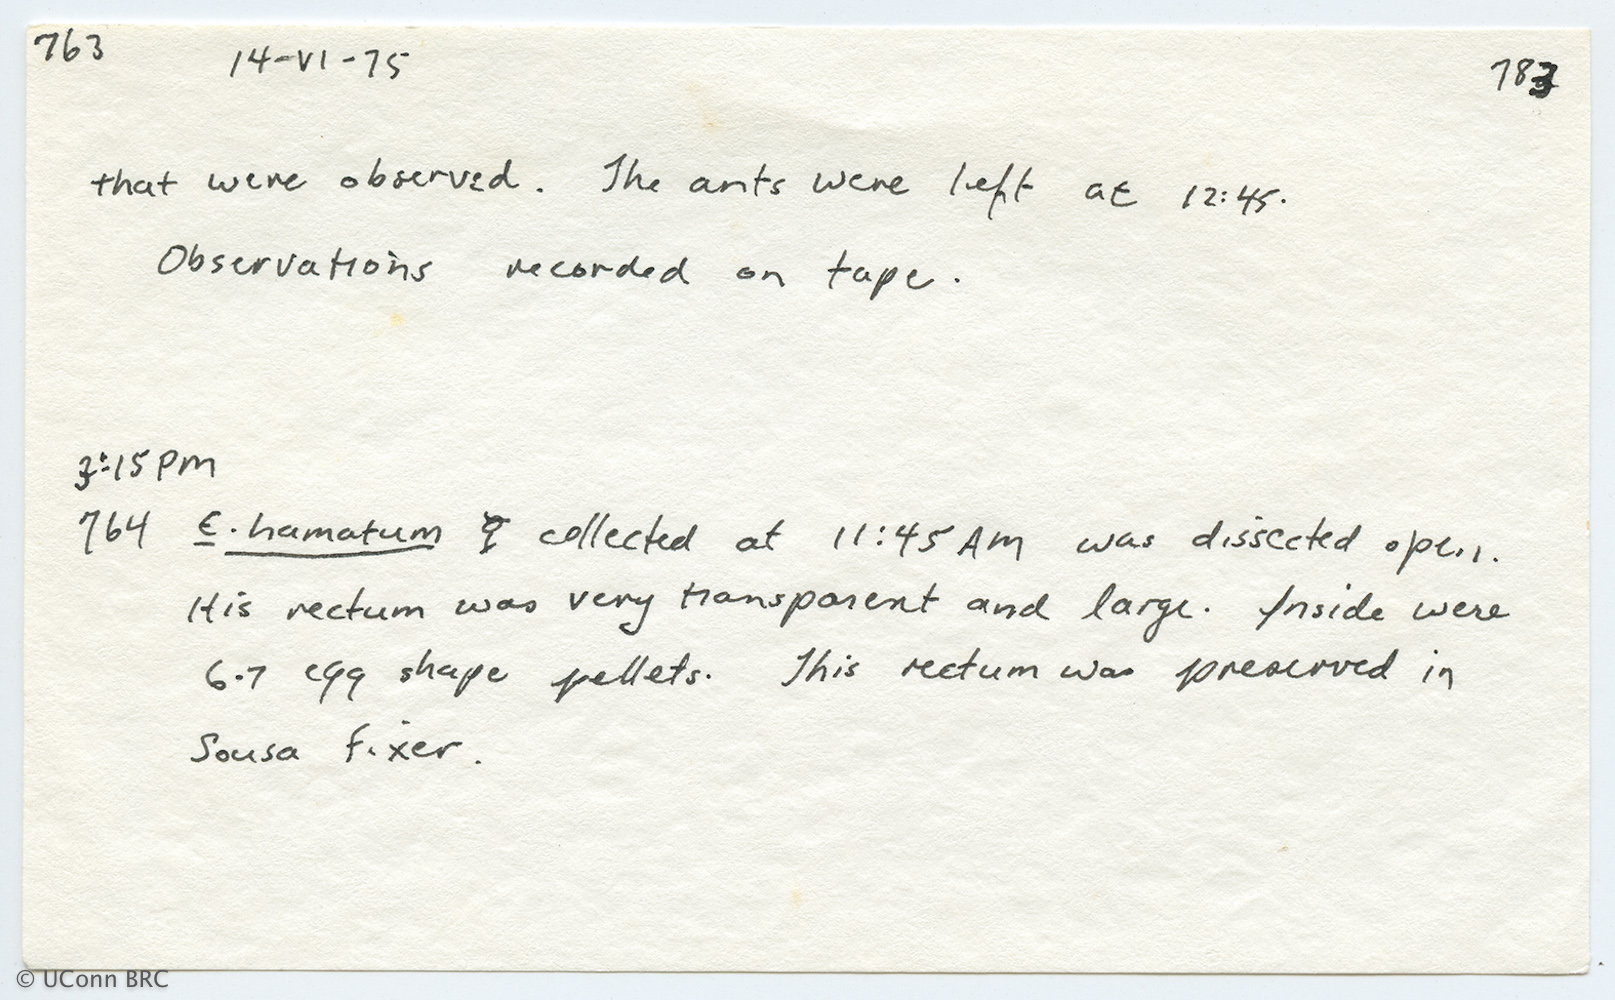 763 14-VI-75 783
that were observed. The ants were left at 12:45.
Observations recorded on tape.
3:15 PM
764 E. hamatum ☿ collected at 11:45 AM was dissected open.
His rectum was very transparent and large. Inside were
6-7 egg shape pellets. This rectum was preserved in
Sousa fixer.
© UConn BRC